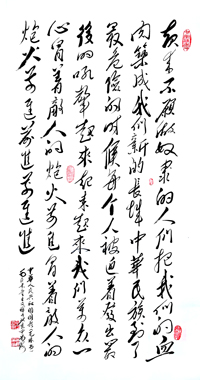 起来不願做奴隶的人们把我们的血
肉築成我们新的長城中華民族到了
最危險的时候每个人被迫着發出最
後的吼聲起来起来起来我们万众一
心冒着敵人的炮火前進冒着敵人的
炮火前進前進前進進
中華人民共和国国歌